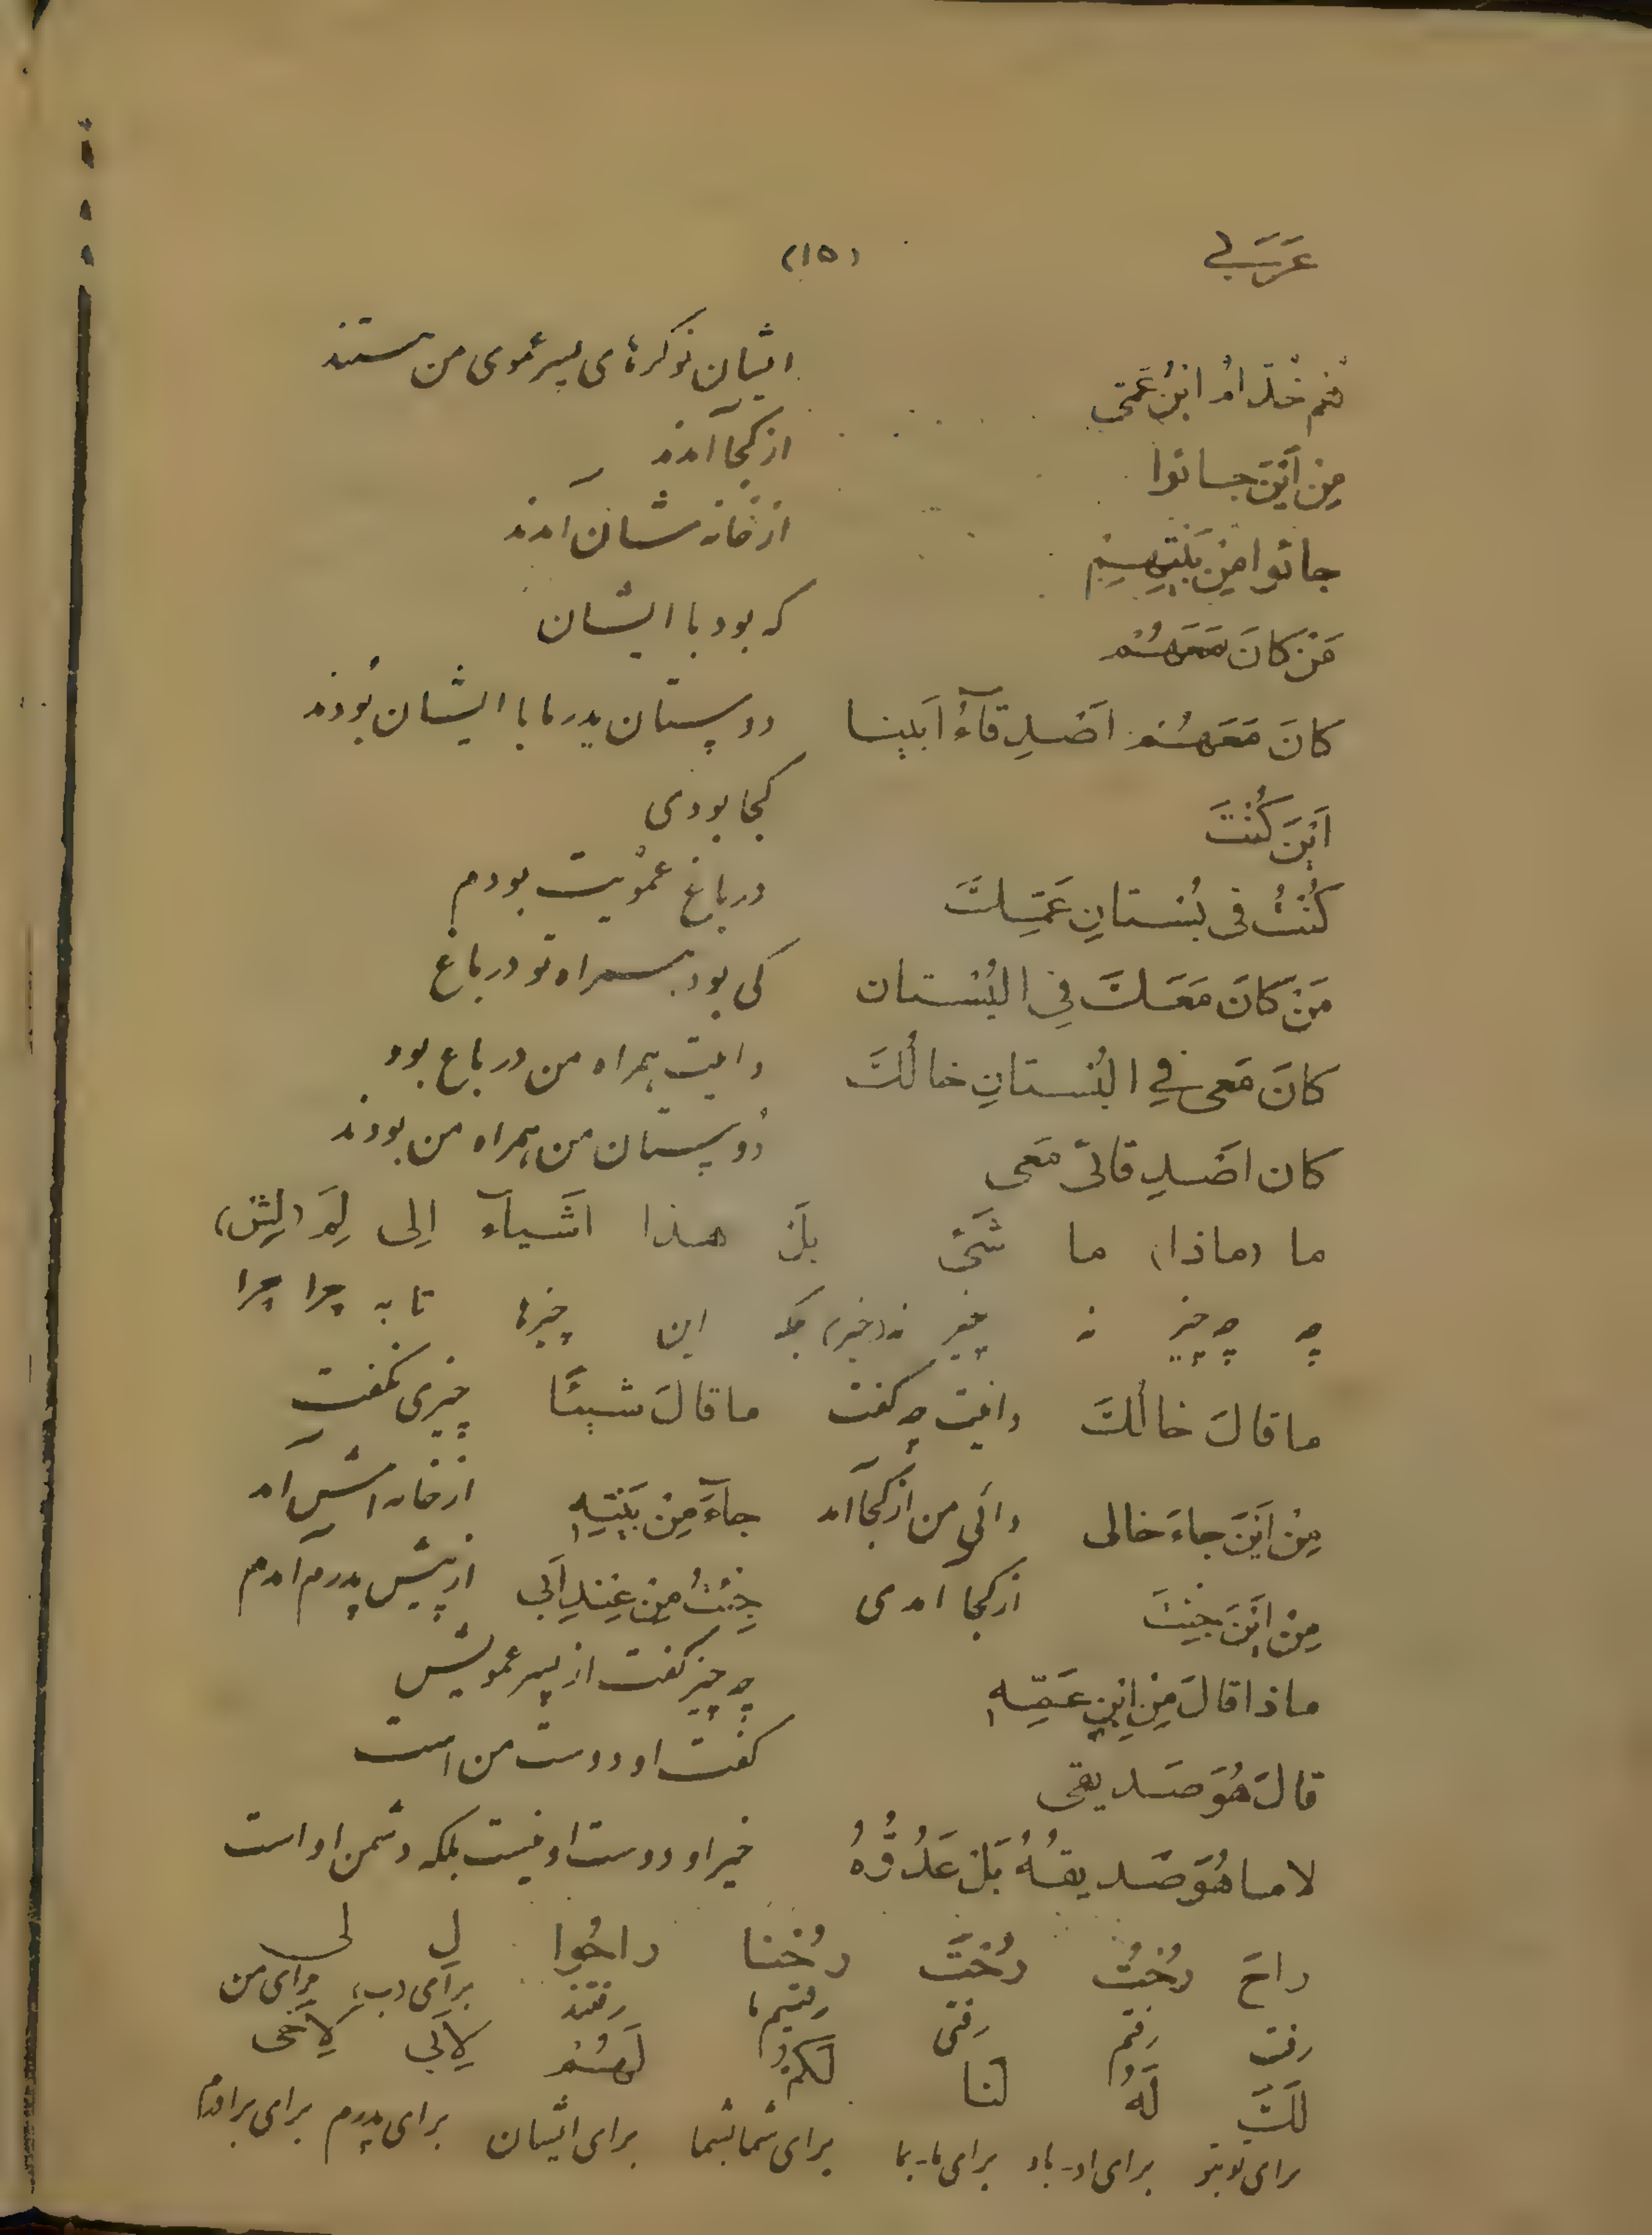 عَرَبی (۱۵)
هُم خُدّامُ ابْنِ عَمّی ایشان نوکرهای پسر عموی من هستند
مِنْ اَیْنَ جائوا از کجا آمدند
جائوا مِنْ بَیْتِهِمْ از خانه شان آمدند
مَنْ کانَ مَعَهُمْ که بود با ایشان
کانَ مَعَهُمْ اَصْدِقآءُ اَبینا دوستان پدر ما با ایشان بودند
اَیْنَ کُنْتَ کجا بودی
کُنْتُ فی بُسْتانِ عَمِّکَ در باغ عمویت بودم
مَنْ کانَ مَعَکَ فِی الْبُسْتان کی بود همراه تو در باغ
کانَ مَعی فِی الْبُسْتانِ خالُکَ دائیت همراه من در باغ بود
کان اَصْدِقائی مَعی دوستان من همراه من بودند
ما (ماذا) ما شَیْ بَلْ هذا اَشْیآء اِلی لِمَ (لِیْش)
چه چه چیز نه چیز نه (خیر) بلکه این چیزها تا به چرا چرا
ما قالَ خالُکَ دائیت چه گفت ما قالَ شَیْئًا چیزی نگفت
مِنْ اَیْنَ جاءَ خالی دائی من از کجا آمد جآءَ مِنْ بَیْتِهِ از خانه اش آمد
مِنْ اَیْنَ جِئْتَ از کجا آمدی جِئْتُ مِنْ عِنْدِ اَبی از پیش پدرم آمدم
ماذا قالَ مِنْ اِبْنِ عَمِّهِ چه چیز گفت از پسر عمویش
قالَ هُوَ صَدیقی گفت او دوست من است
لا ما هُوَ صَدیقُهُ بَلْ عَدُوُّهُ خیر او دوست او نیست بلکه دشمن او است
راحَ رُحْتُ رُحْتَ رُحْنا راحُوا لِ لی
رفت رفتم رفتی رفتیم رفتند برای (ب) برای من
لَکَ لَهُ لَنا لَکُمْ لَهُمْ لِاَبی لِاَخی
برای تو بتو برای او - باو برای ما - بما برای شما بشما برای ایشان برای پدرم برای برادرم